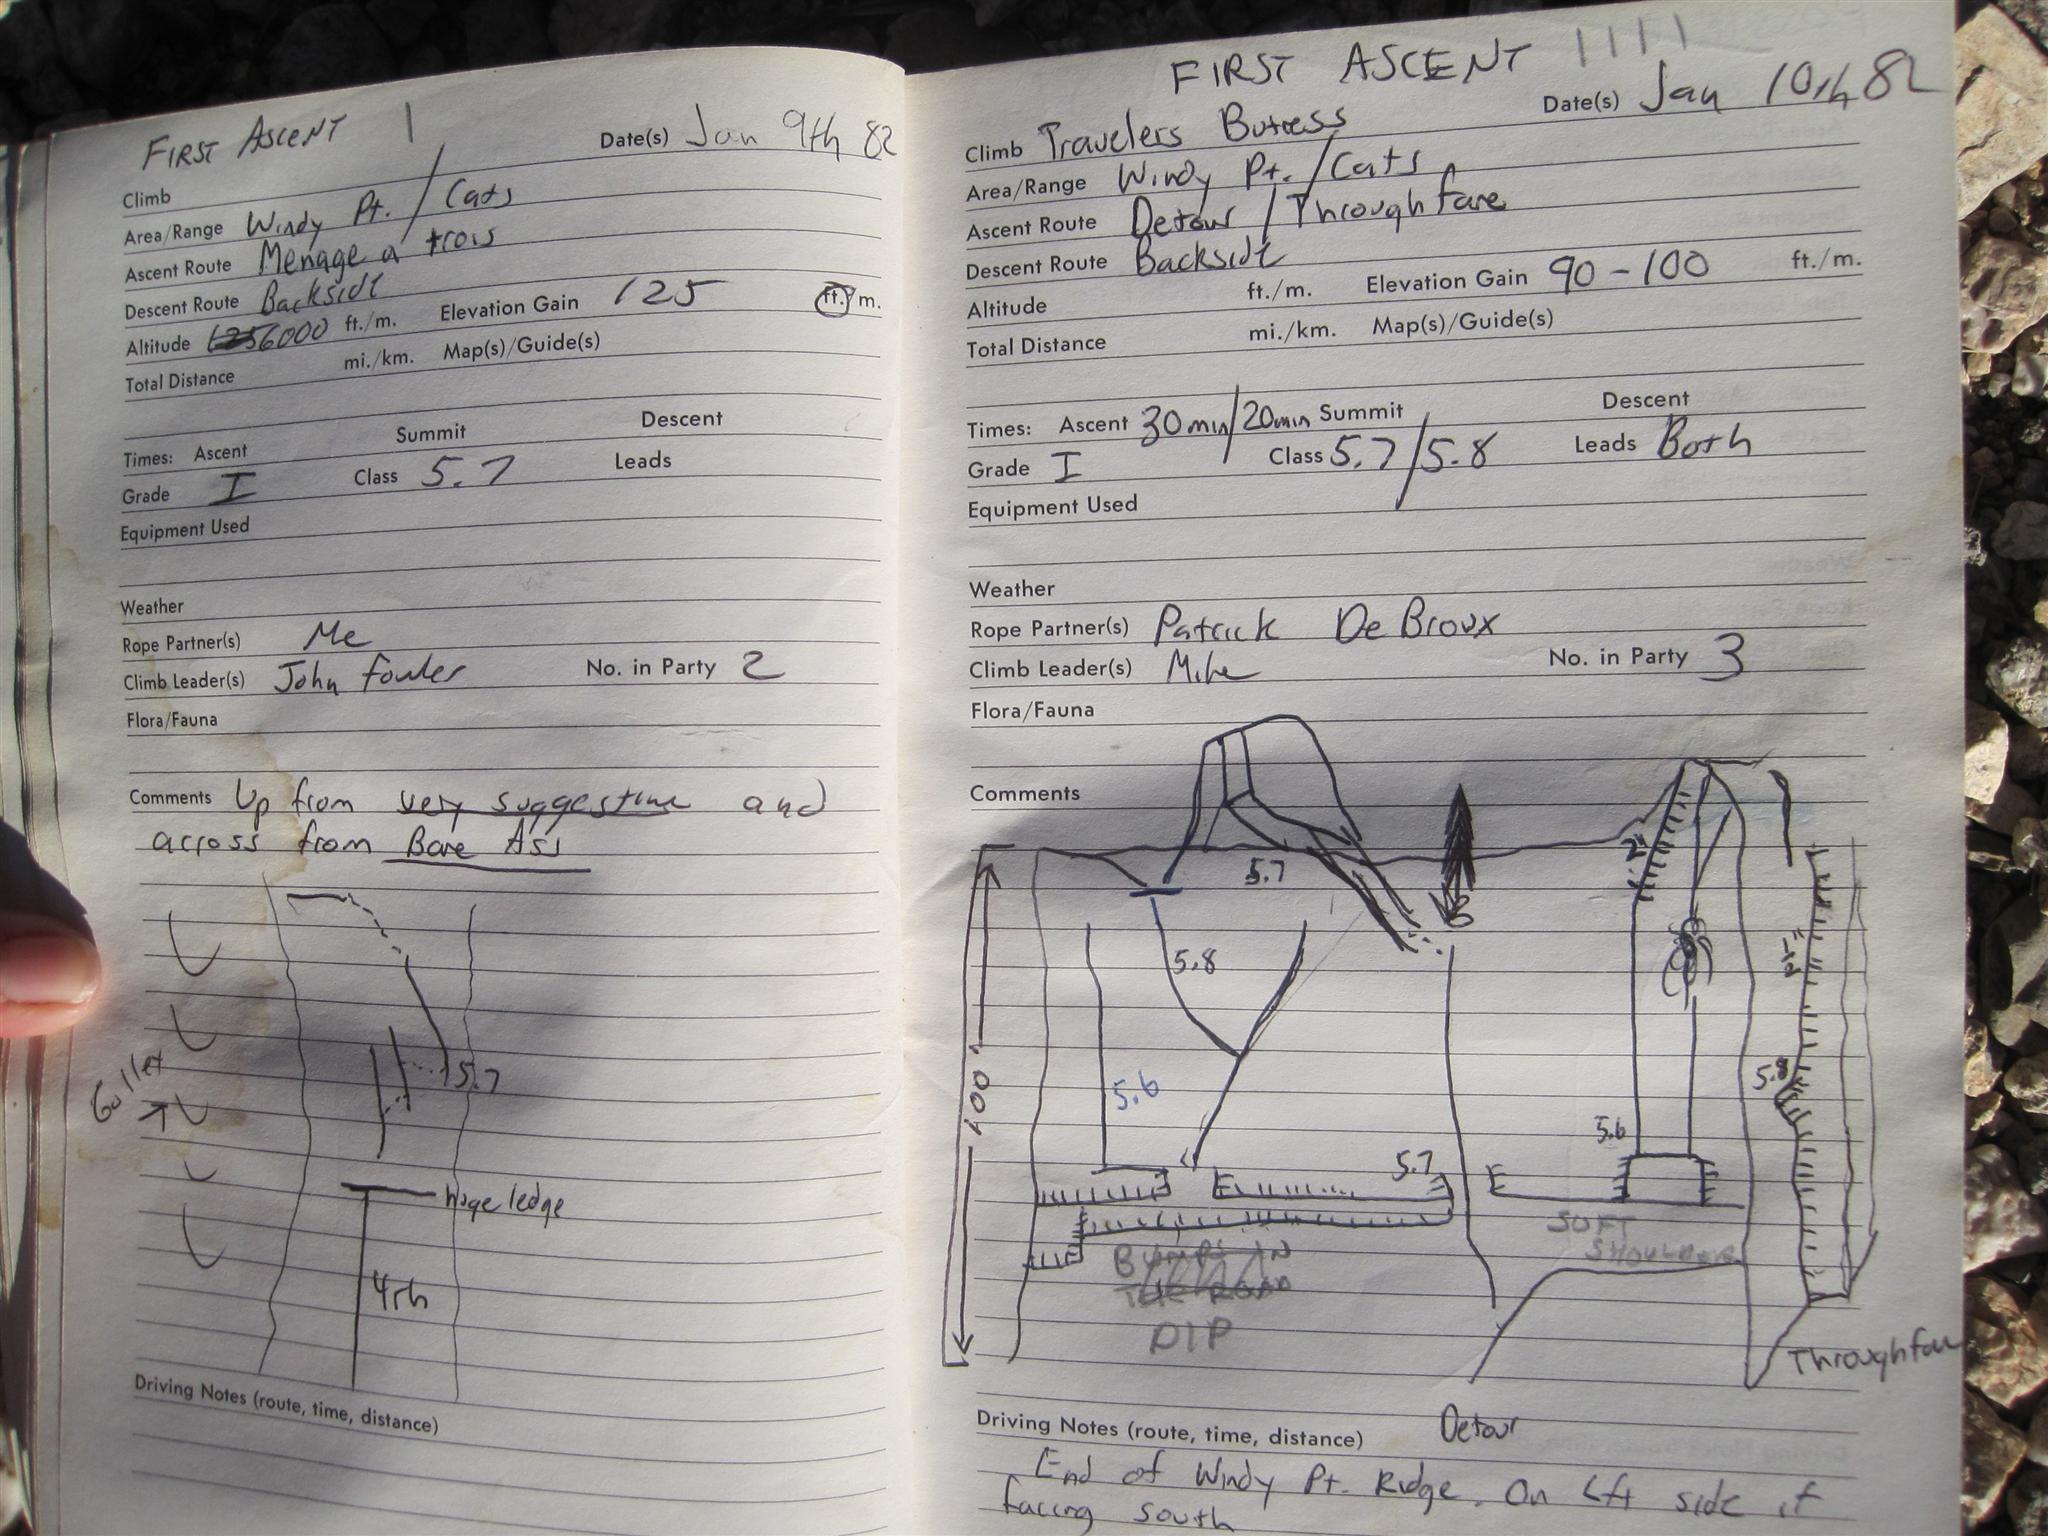 FIRST ASCENT
Date(s) Jan 9th 82
Climb
Area/Range Windy Pt. / Cats
Ascent Route Menage a trois
Descent Route Backside
Altitude 6000 ft./m. Elevation Gain 125 ft./m.
Total Distance mi./km. Map(s)/Guide(s)
Times: Ascent Summit Descent
Grade I Class 5.7 Leads
Equipment Used
Weather
Rope Partner(s) Me
Climb Leader(s) John Fowler No. in Party 2
Flora/Fauna
Comments Up from very suggestive and
across from Bare Ass
5.7
Gulley
Huge ledge
4th
Driving Notes (route, time, distance)
FIRST ASCENT
Date(s) Jan 10th 82
Climb Travelers Butress
Area/Range Windy Pt. / Cats
Ascent Route Detour / Throughfare
Descent Route Backside
Altitude ft./m. Elevation Gain 90-100 ft./m.
Total Distance mi./km. Map(s)/Guide(s)
Times: Ascent 30min/20min Summit Descent
Grade I Class 5.7/5.8 Leads Both
Equipment Used
Weather
Rope Partner(s) Patrick De Broux
Climb Leader(s) Mike No. in Party 3
Flora/Fauna
Comments
5.7
5.8
100'
5.6
5.8
5.6
5.7
SOFT
SHOULDER
BUMPS IN
THE ROAD
DIP
Throughfare
Detour
Driving Notes (route, time, distance)
End of Windy Pt. Ridge. On Lft side if
facing south